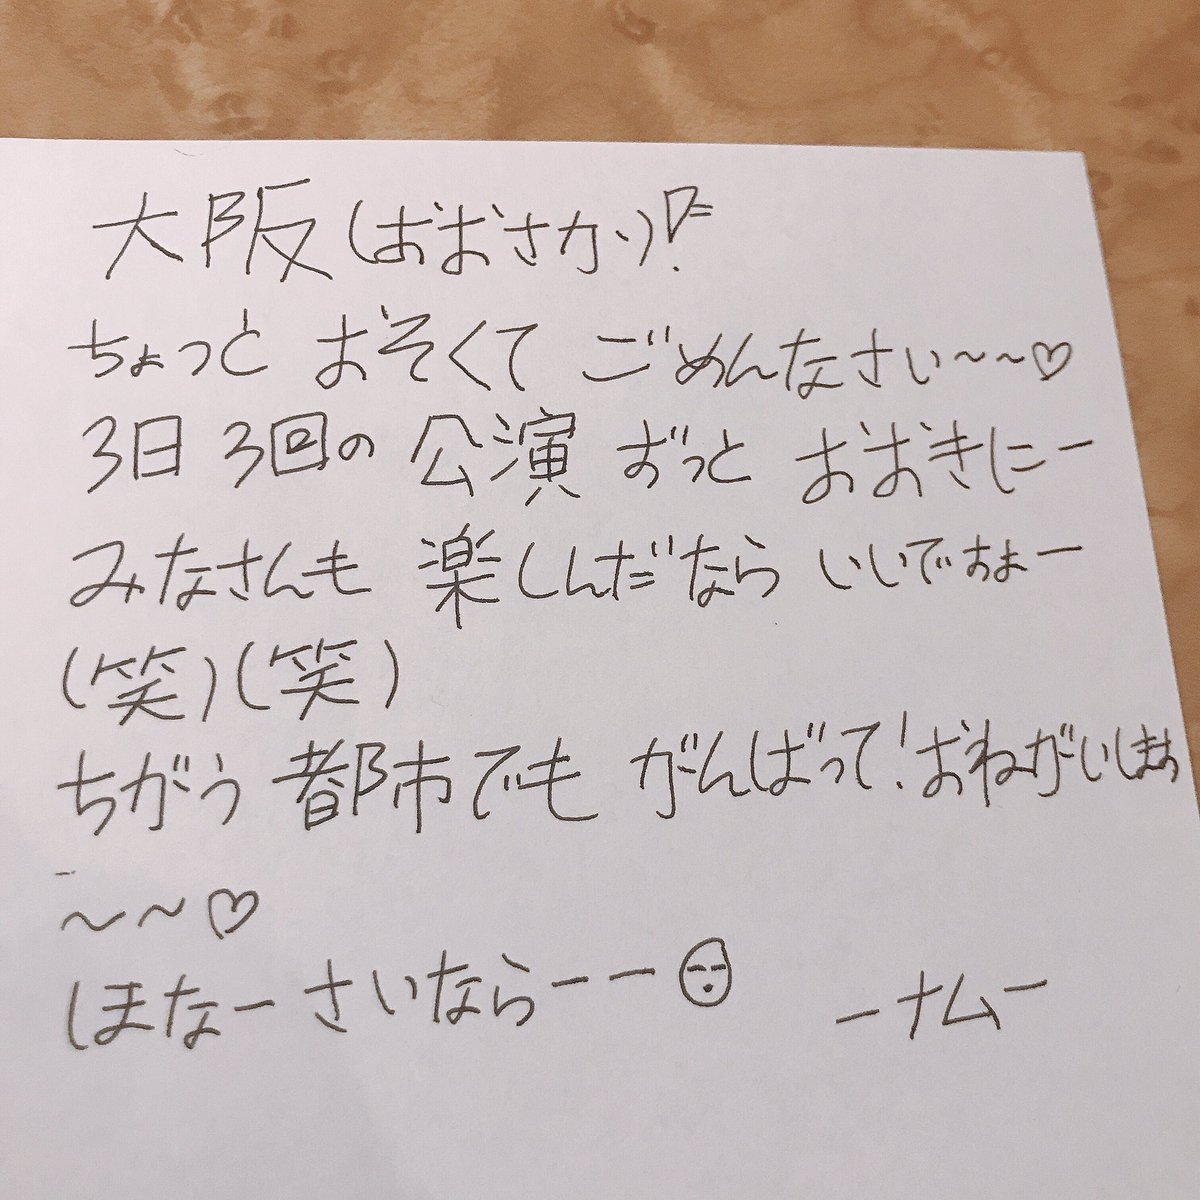 大阪(おおさか)!
ちょっと おそくて ごめんなさい~~~♡
3日 3回の 公演 ずっと おおきにー
みなさんも 楽しんだなら いいですよー
(笑)(笑)
ちがう 都市でも がんばって!おねがいしまぁ
~~♡
ほなーさいならーー
ーナムー